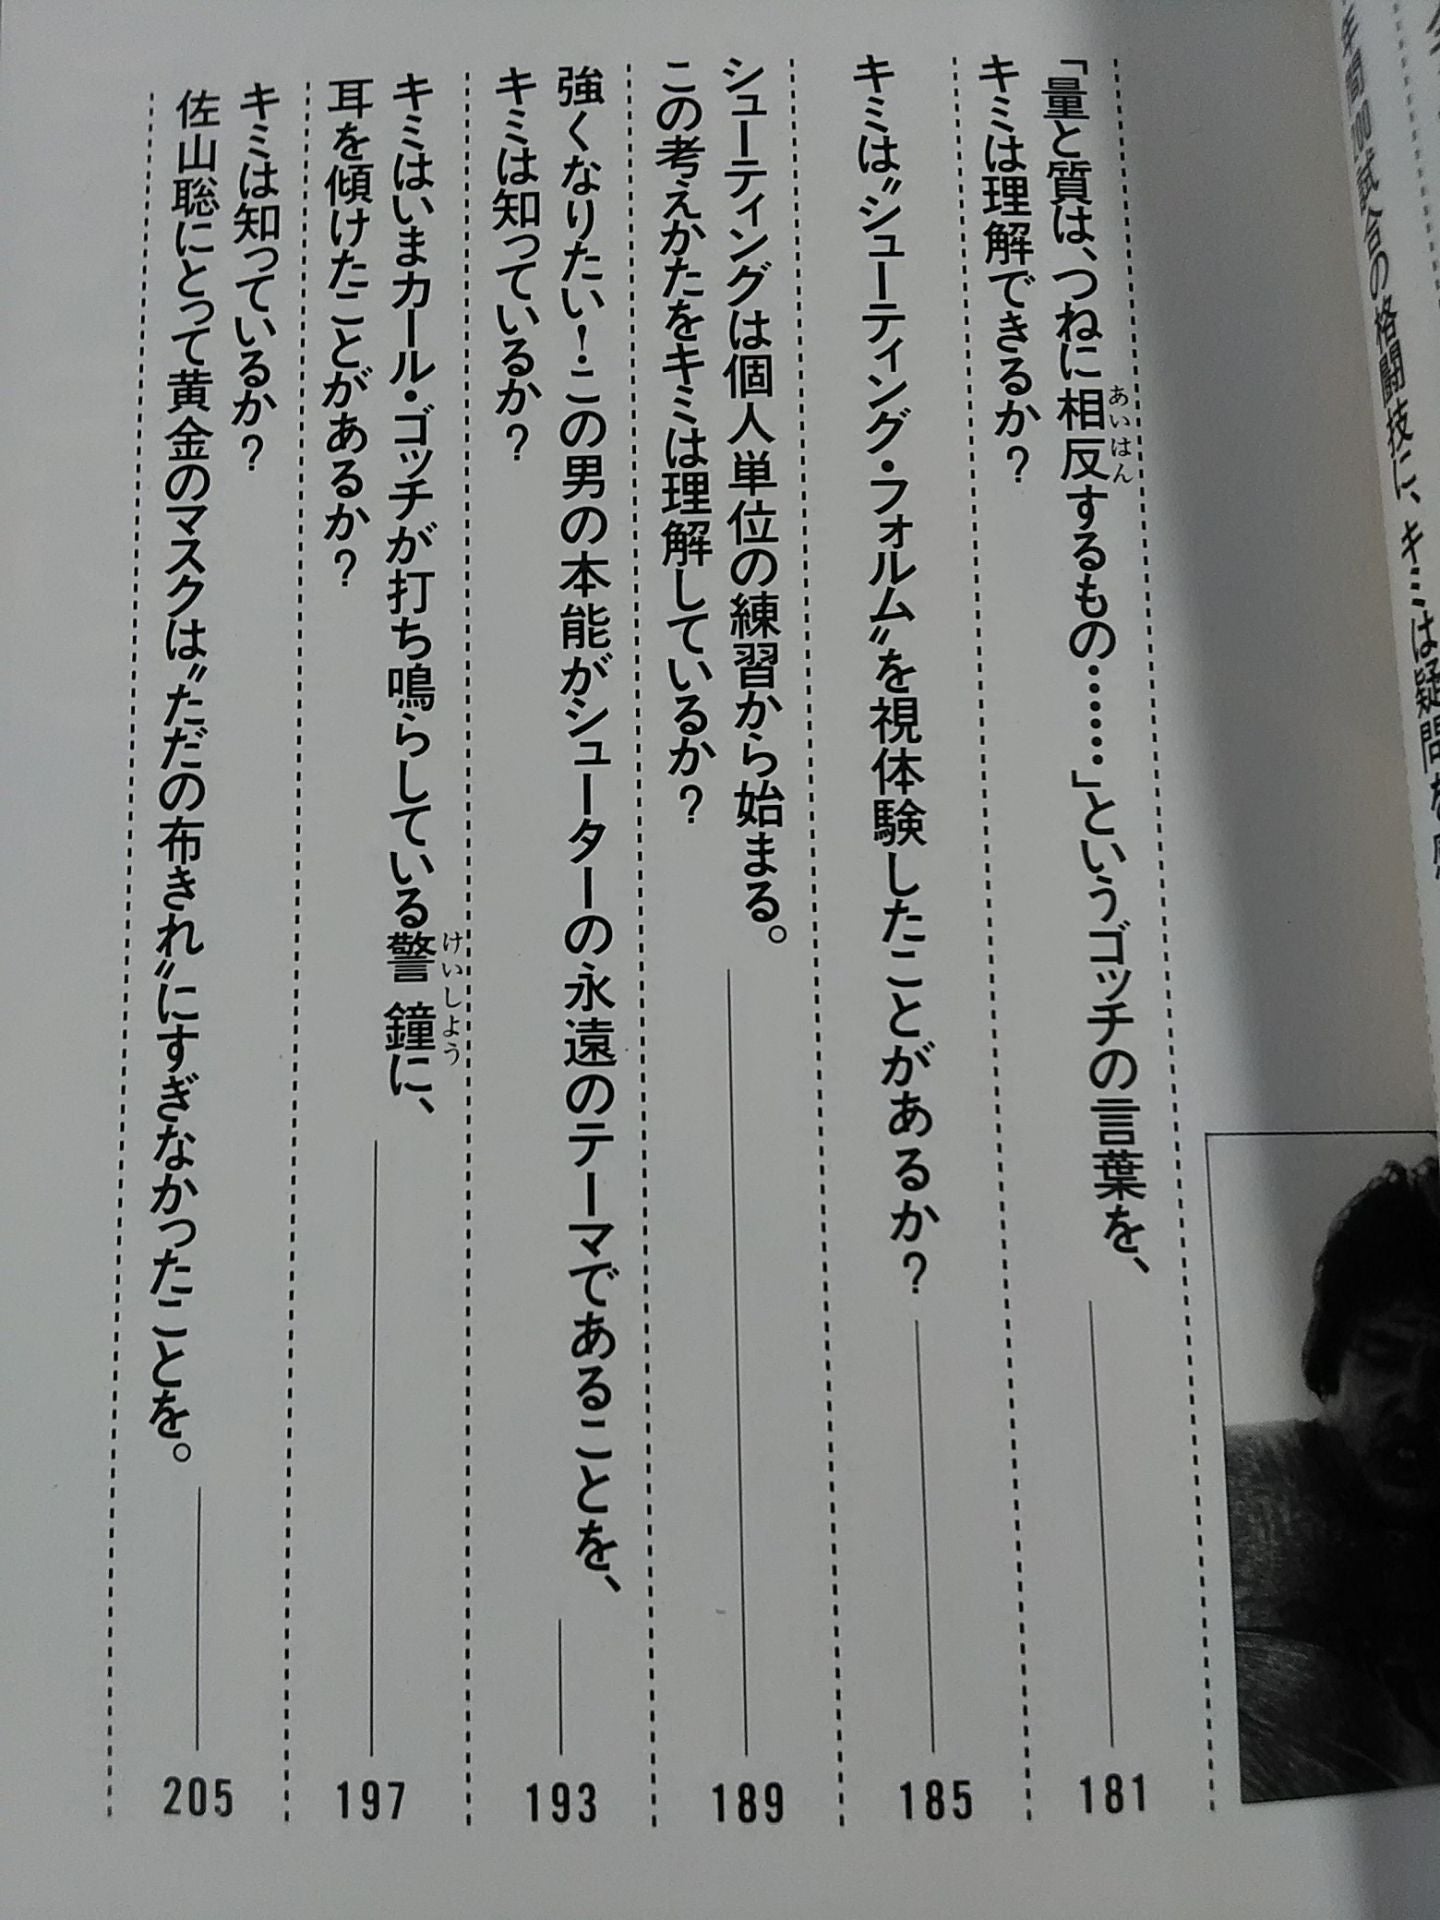 年間100試合の格闘技に、キミは疑問を
「量と質は、つねに相反するもの………」というゴッチの言葉を、
あいはん
キミは理解できるか?
181
キミは〝シューティング・フォルム〟を視体験したことがあるか?
185
シューティングは個人単位の練習から始まる。
この考えかたをキミは理解しているか?
189
強くなりたい!この男の本能がシューターの永遠のテーマであることを、
キミは知っているか?
193
キミはいまカール・ゴッチが打ち鳴らしている警鐘に、
けいしよう
耳を傾けたことがあるか?
197
キミは知っているか?
佐山聡にとって黄金のマスクは〝ただの布きれ〟にすぎなかったことを。
205